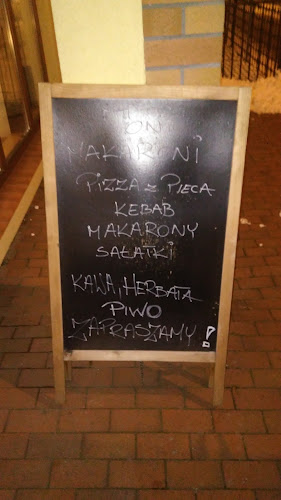 ON
MAKARONI
PIZZA Z PIECA
KEBAB
MAKARONY
SAŁATKI
KAWA, HERBATA
PIWO
ZAPRASZAMY!